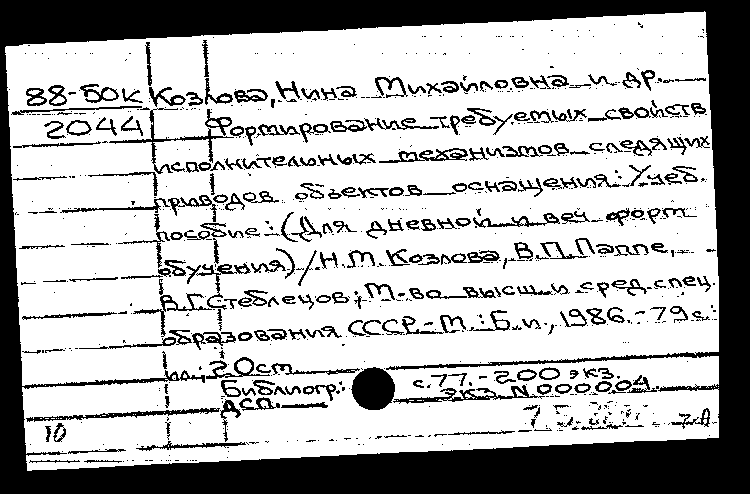 88-5ОК Козлова, Нина Михайловна и др.
2044 Формирование требуемых свойств
исполнительных механизмов следящих
приводов объектов оснащения: Учеб.
пособие: (Для дневной и веч форм
обучения) / Н.М. Козлова, В.П. Паппе,
В.Г. Стеблецов; М-во высш. и сред. спец.
образования СССР.-М.: Б.и., 1986.-79 с.:
ил.; 20см.
Библиогр.: с.77.-200 экз.
ДСП. ЭКЗ. N 000004.
10